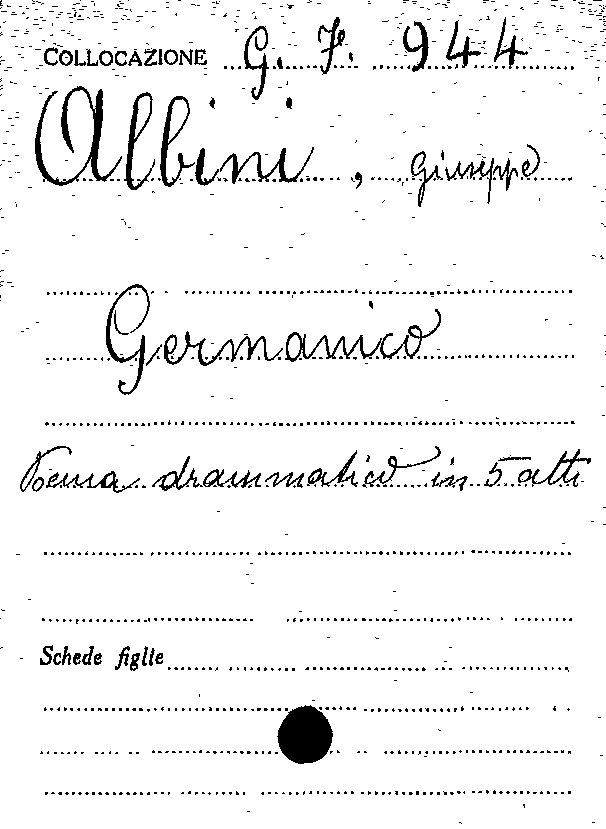 COLLOCAZIONE G. F. 944
Albini, Giuseppe
Germanico
Poema drammatico in 5 atti
Schede figlie